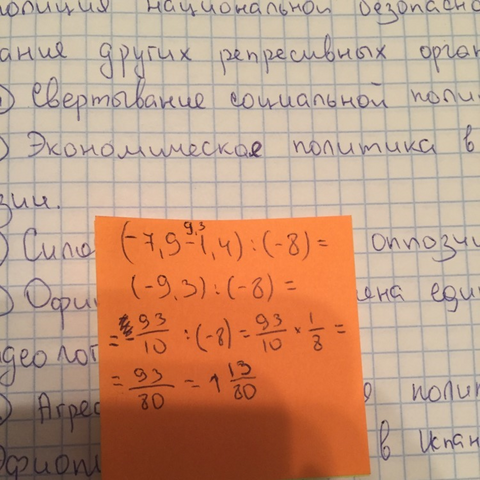 полиция национальной безопасно
ание других репресивных орган
Свертывание социальной поли
Экономическое политика в
зии.
Сило оппозиц
Офи ена еди
део лог
Агрес полит
Офиоп в Испан
9,3
(-7,9-1,4):(-8)=
(-9,3):(-8)=
=-93/10 :(-8)=93/10×1/8=
=93/80=1 13/80